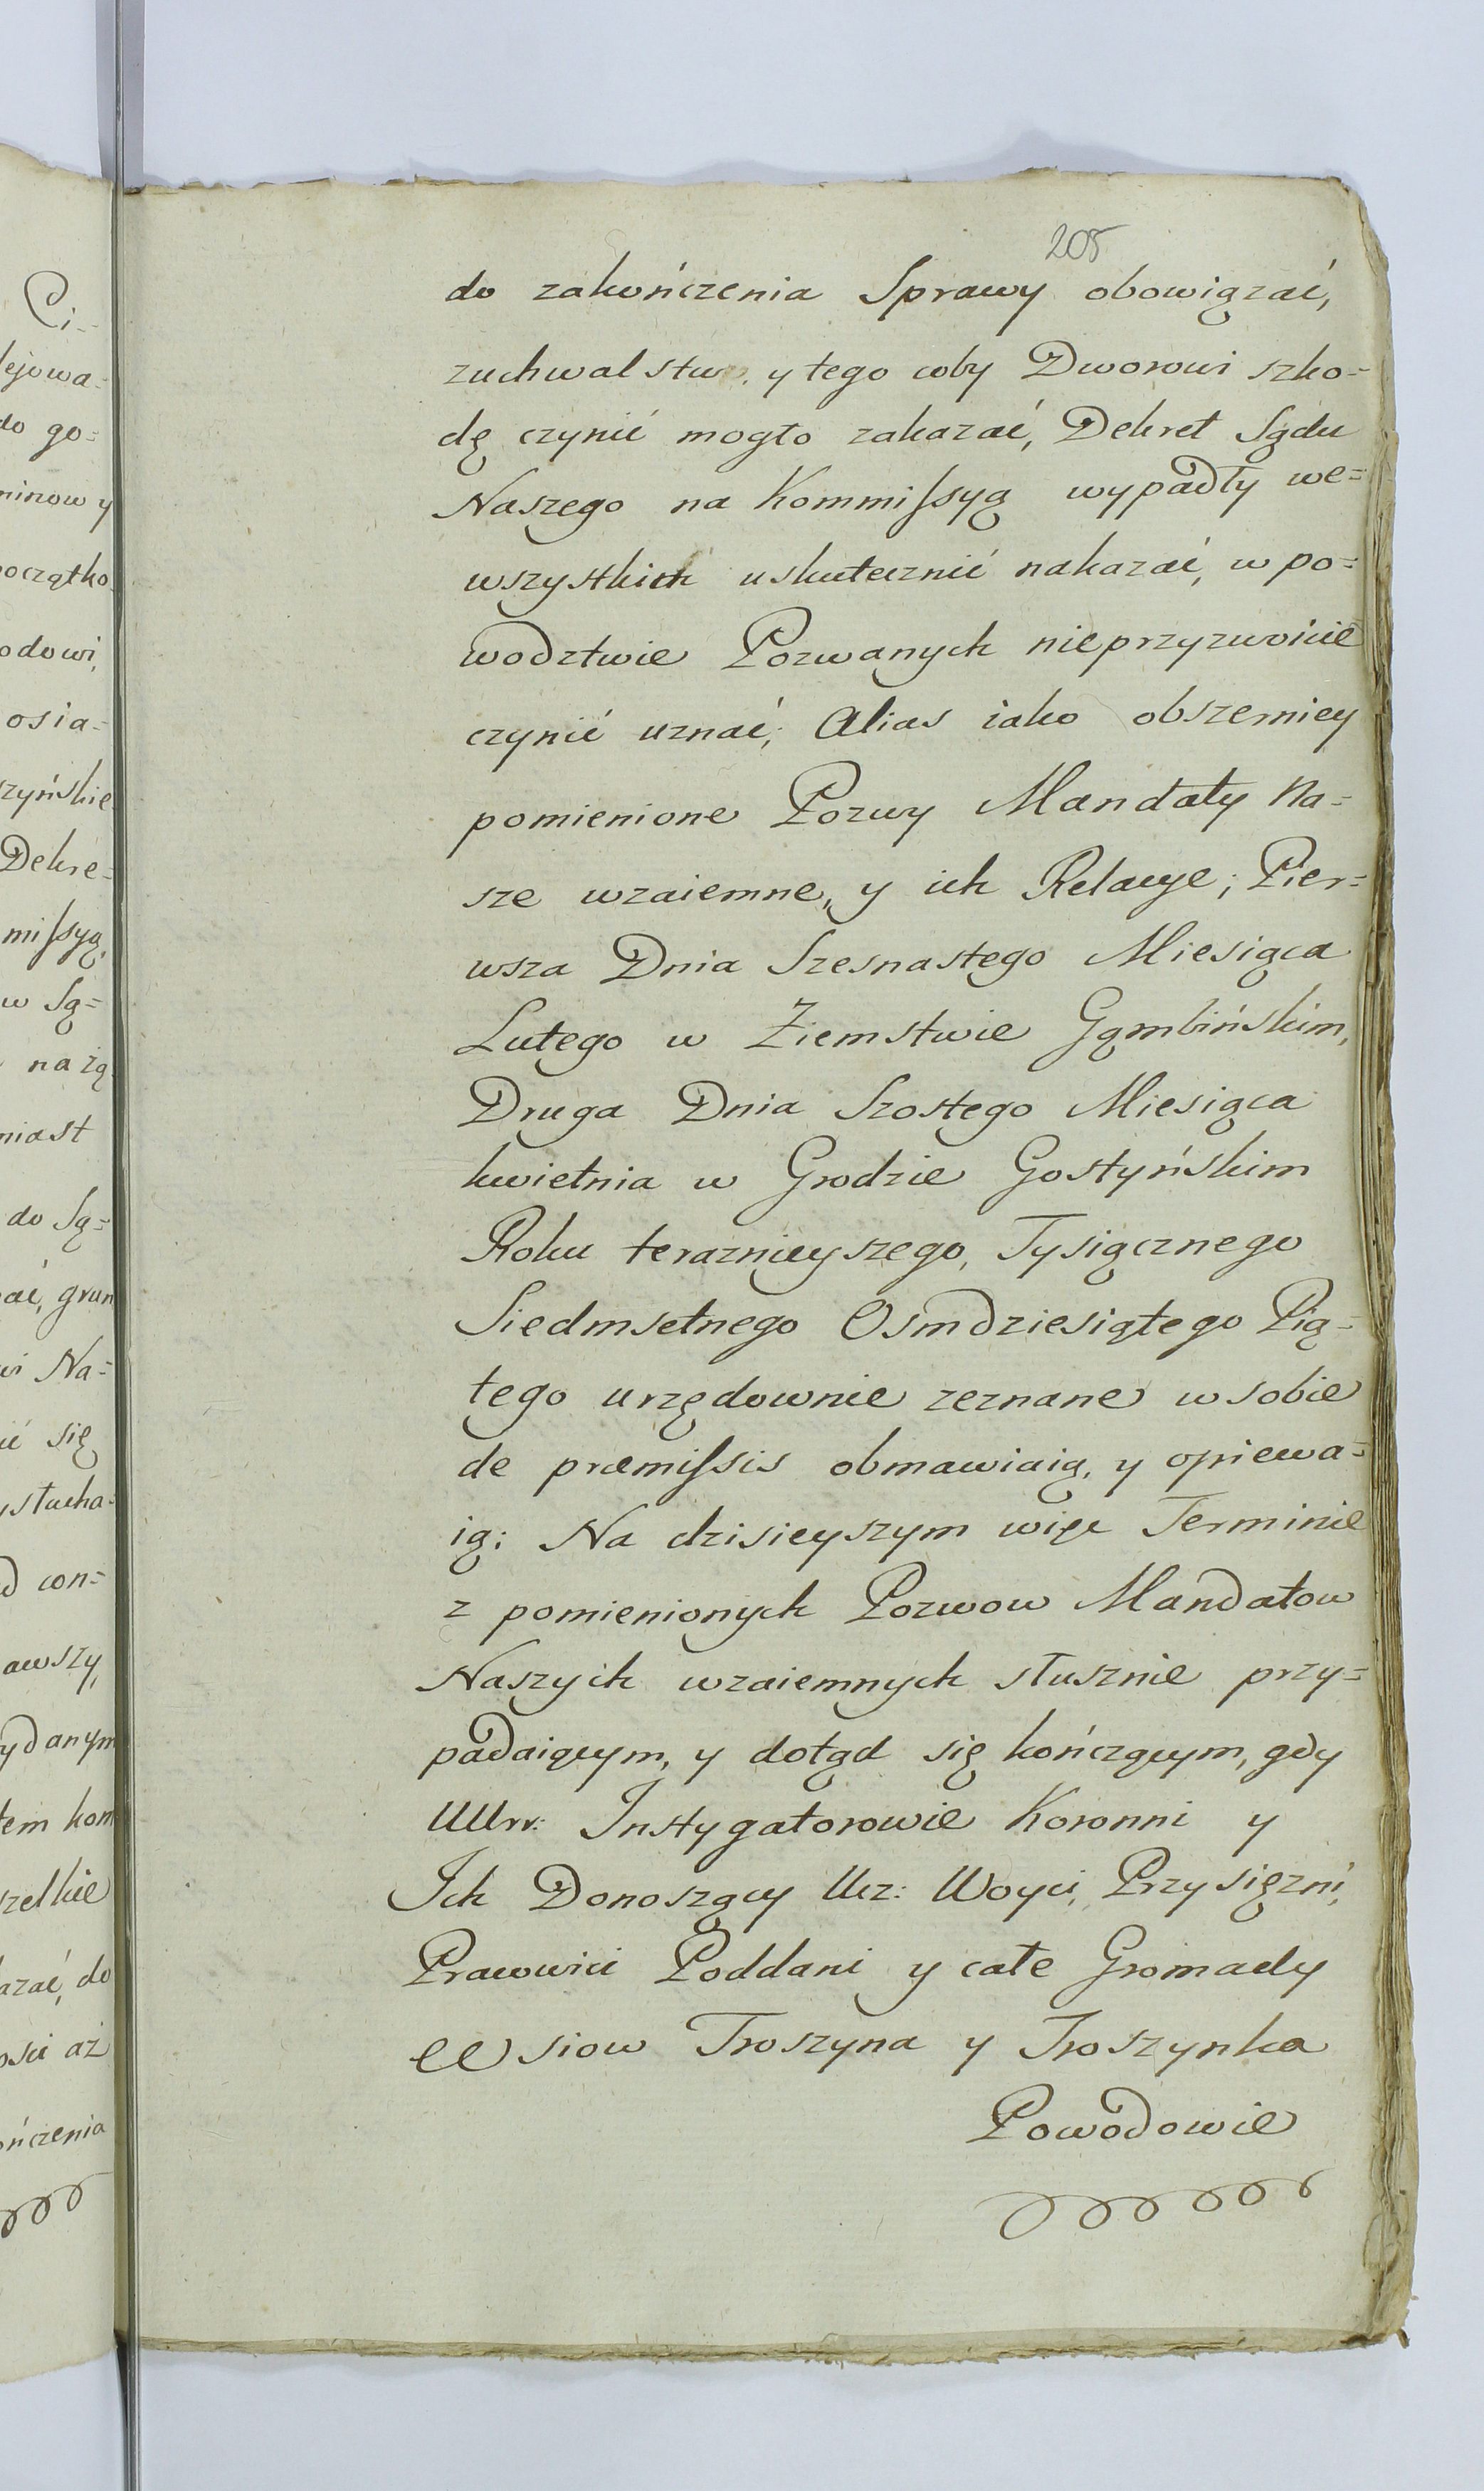 205
do zakończenia Sprawy obowiązać,
zuchwalstwo, y tego coby Dworowi szko=
dę czynić mogło zakazać, Dekret Sądu
Naszego na Kommissyą wypadły we=
wszystkich uskutecznić nakazać, w po=
wodztwie Pozwanych nieprzyzwoicie
czynić uznać; Alias iako obszerniey
pomienione Pozwy Mandaty Na=
sze wzaiemne, y ich Relacye; Pier=
wsza Dnia Szesnastego Miesiąca
Lutego w Ziemstwie Gąmbińskim,
Druga Dnia Szostego Miesiąca
kwietnia w Grodzie Gostyńskim
Roku teraznieyszego, Tysiącznego
Siedmsetnego Osmdziesiątego Pią=
tego urzędownie zeznane w sobie
de præmissis obmawiaią, y opiewa=
ią: Na dzisieyszym więc Terminie
z pomienionych Pozwow Mandatow
Naszych wzaiemnych słusznie przy=
padaiącym, y dotąd się kończącym, gdy
UUrr: Instygatorowie Koronni y
Ich Donoszący Ucz: Woyci, Przysięzni,
Prawowici Poddani y całe Gromady
Wsiow Troszyna y Troszynka
Powodowie
Ci=
lejowa=
do go=
minow y
początko
odowi,
osia=
szyńskie
Dekre=
missyą,
w Są=
na żą
miast
do Są=
ać, grun
wi Na=
ić się
słucha=
con=
awszy,
ydanym
tem kom
szelkie
azać, do
ości aż
ończenia